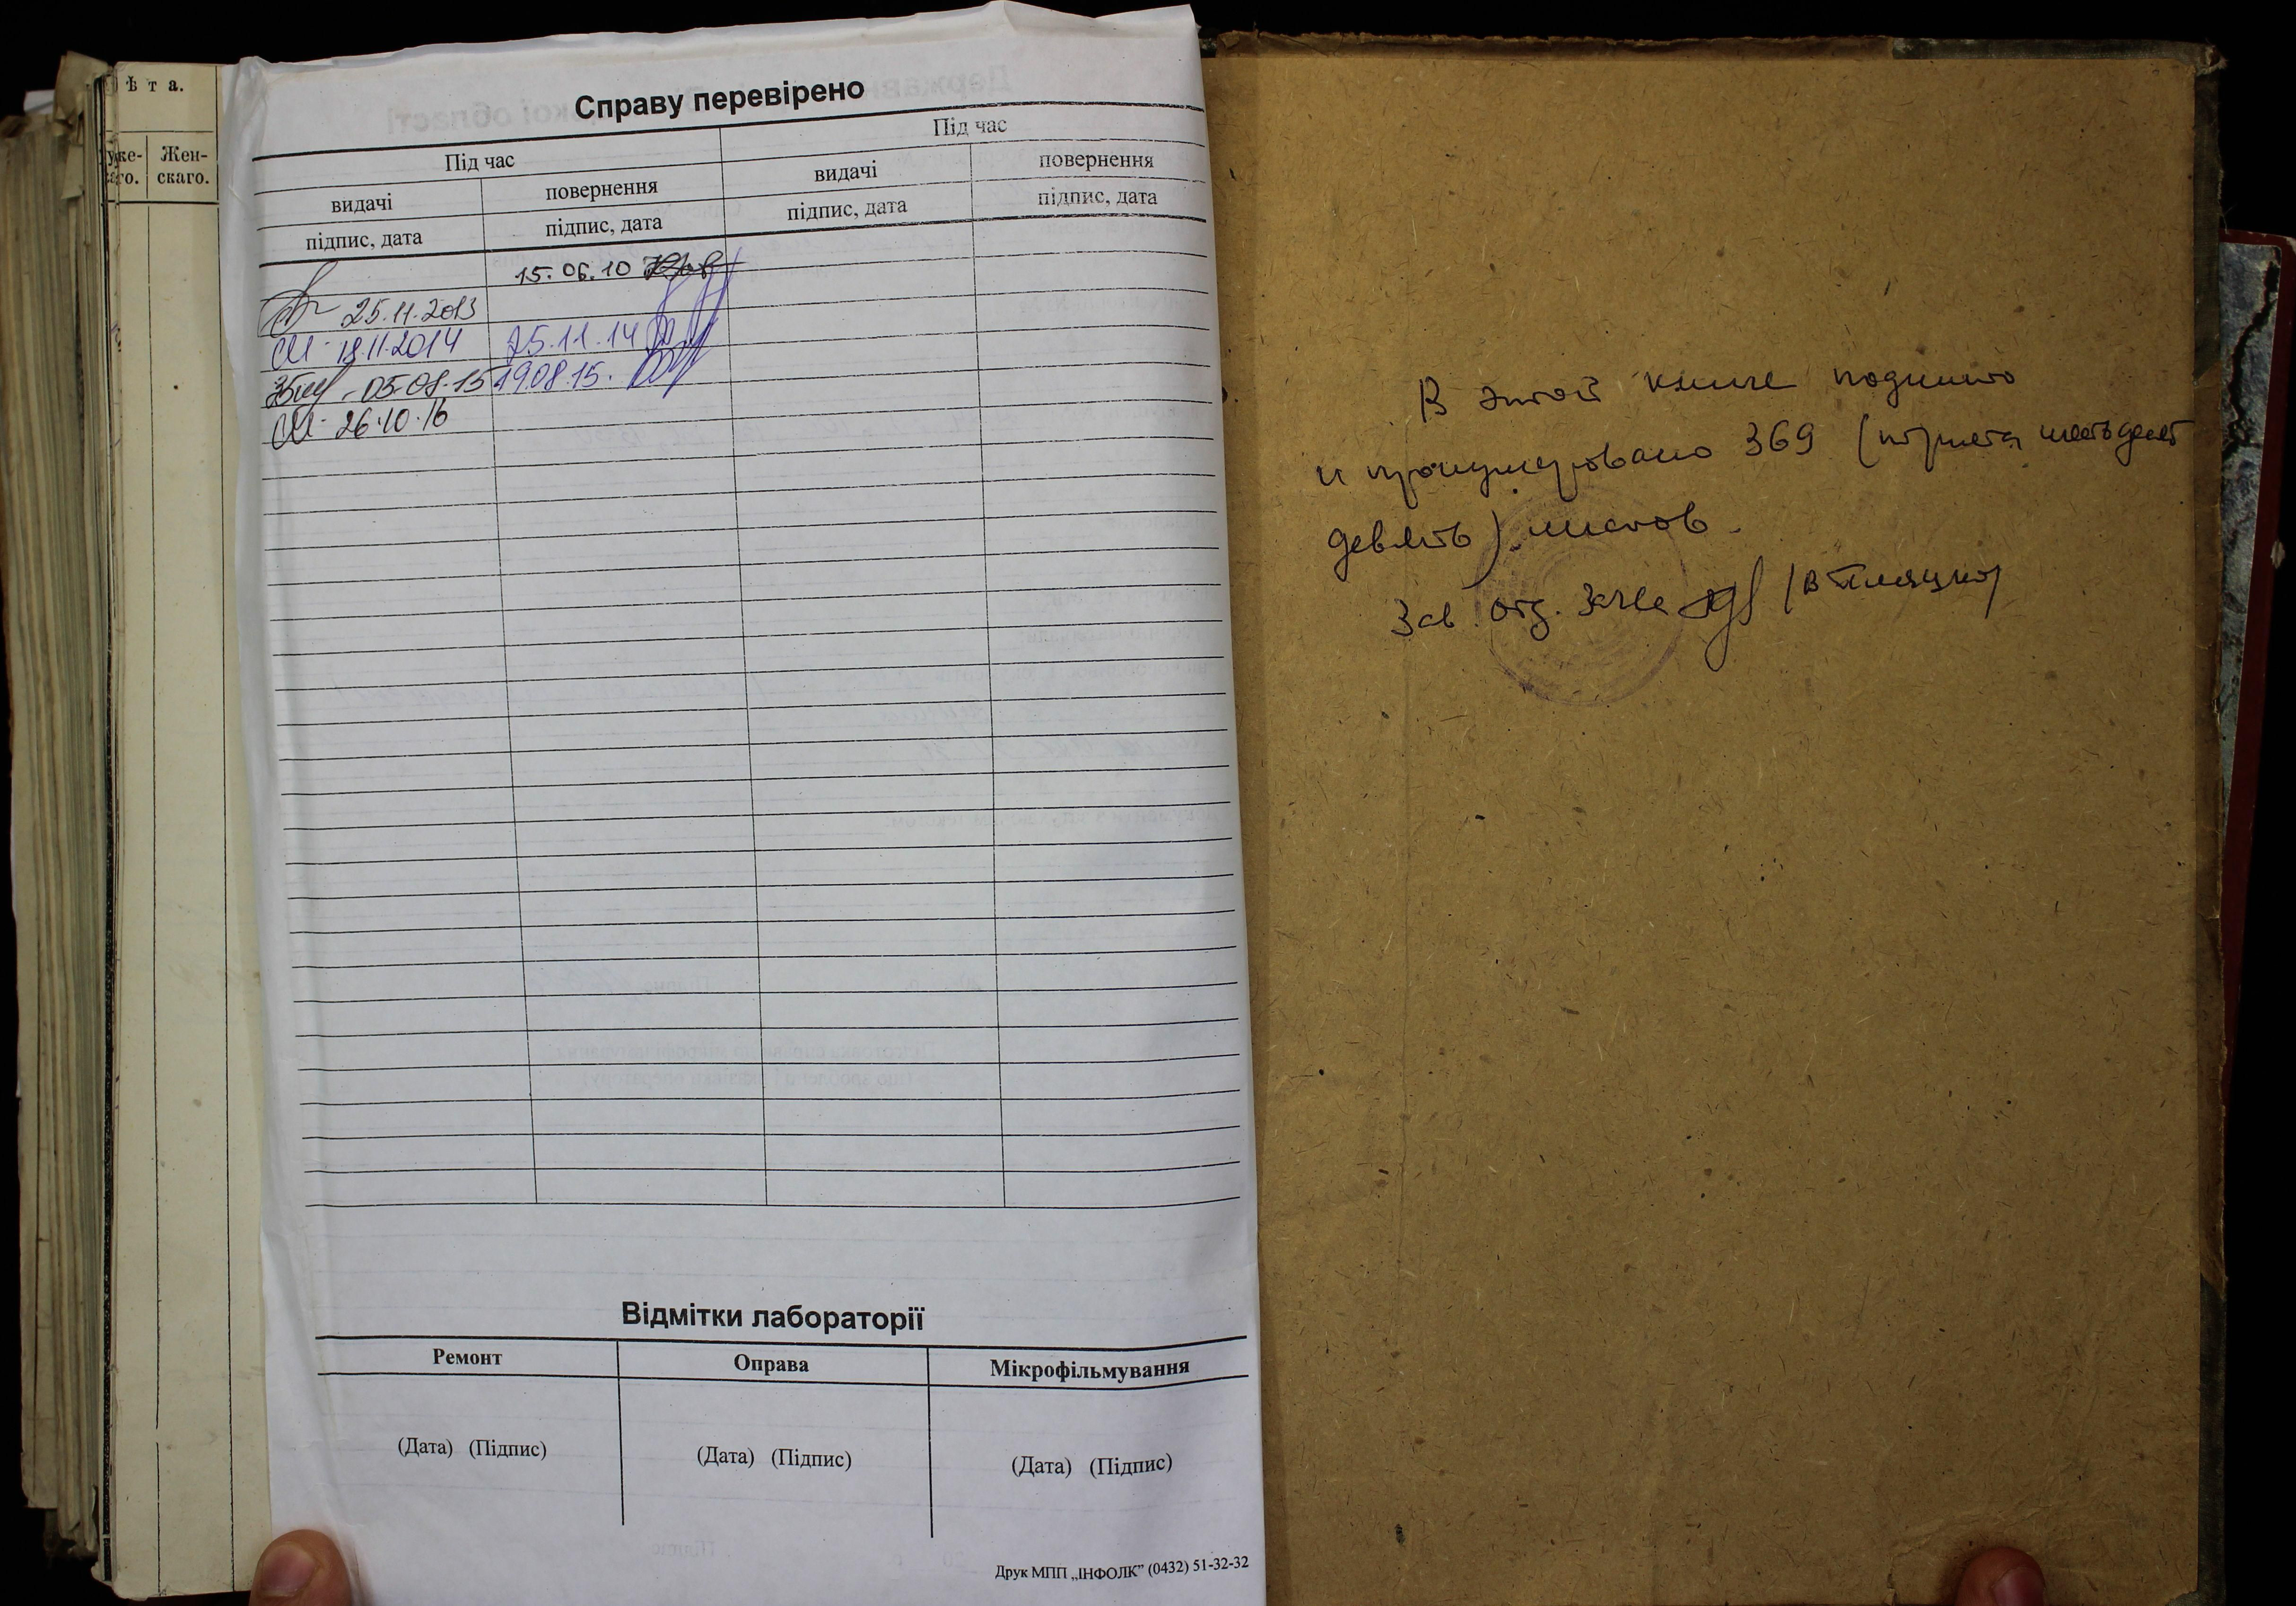 ѣ т а.
Жен-
скаго.
Справу перевірено
Під час
Під час
видачі
повернення
видачі
повернення
підпис, дата
підпис, дата
підпис, дата
підпис, дата
15.06.10
25.11.2013
18.11.2014 25.11.14
05.08.15 19.08.15.
26.10.16
Відмітки лабораторії
Ремонт
Оправа
Мікрофільмування
(Дата) (Підпис)
(Дата) (Підпис)
(Дата) (Підпис)
Друк МПП „ІНФОЛК” (0432) 51-32-32
В этой книге подшито
и пронумеровано 369 (триста шестьдесят
девять) листов.
Зав. отд. ЗАГСа